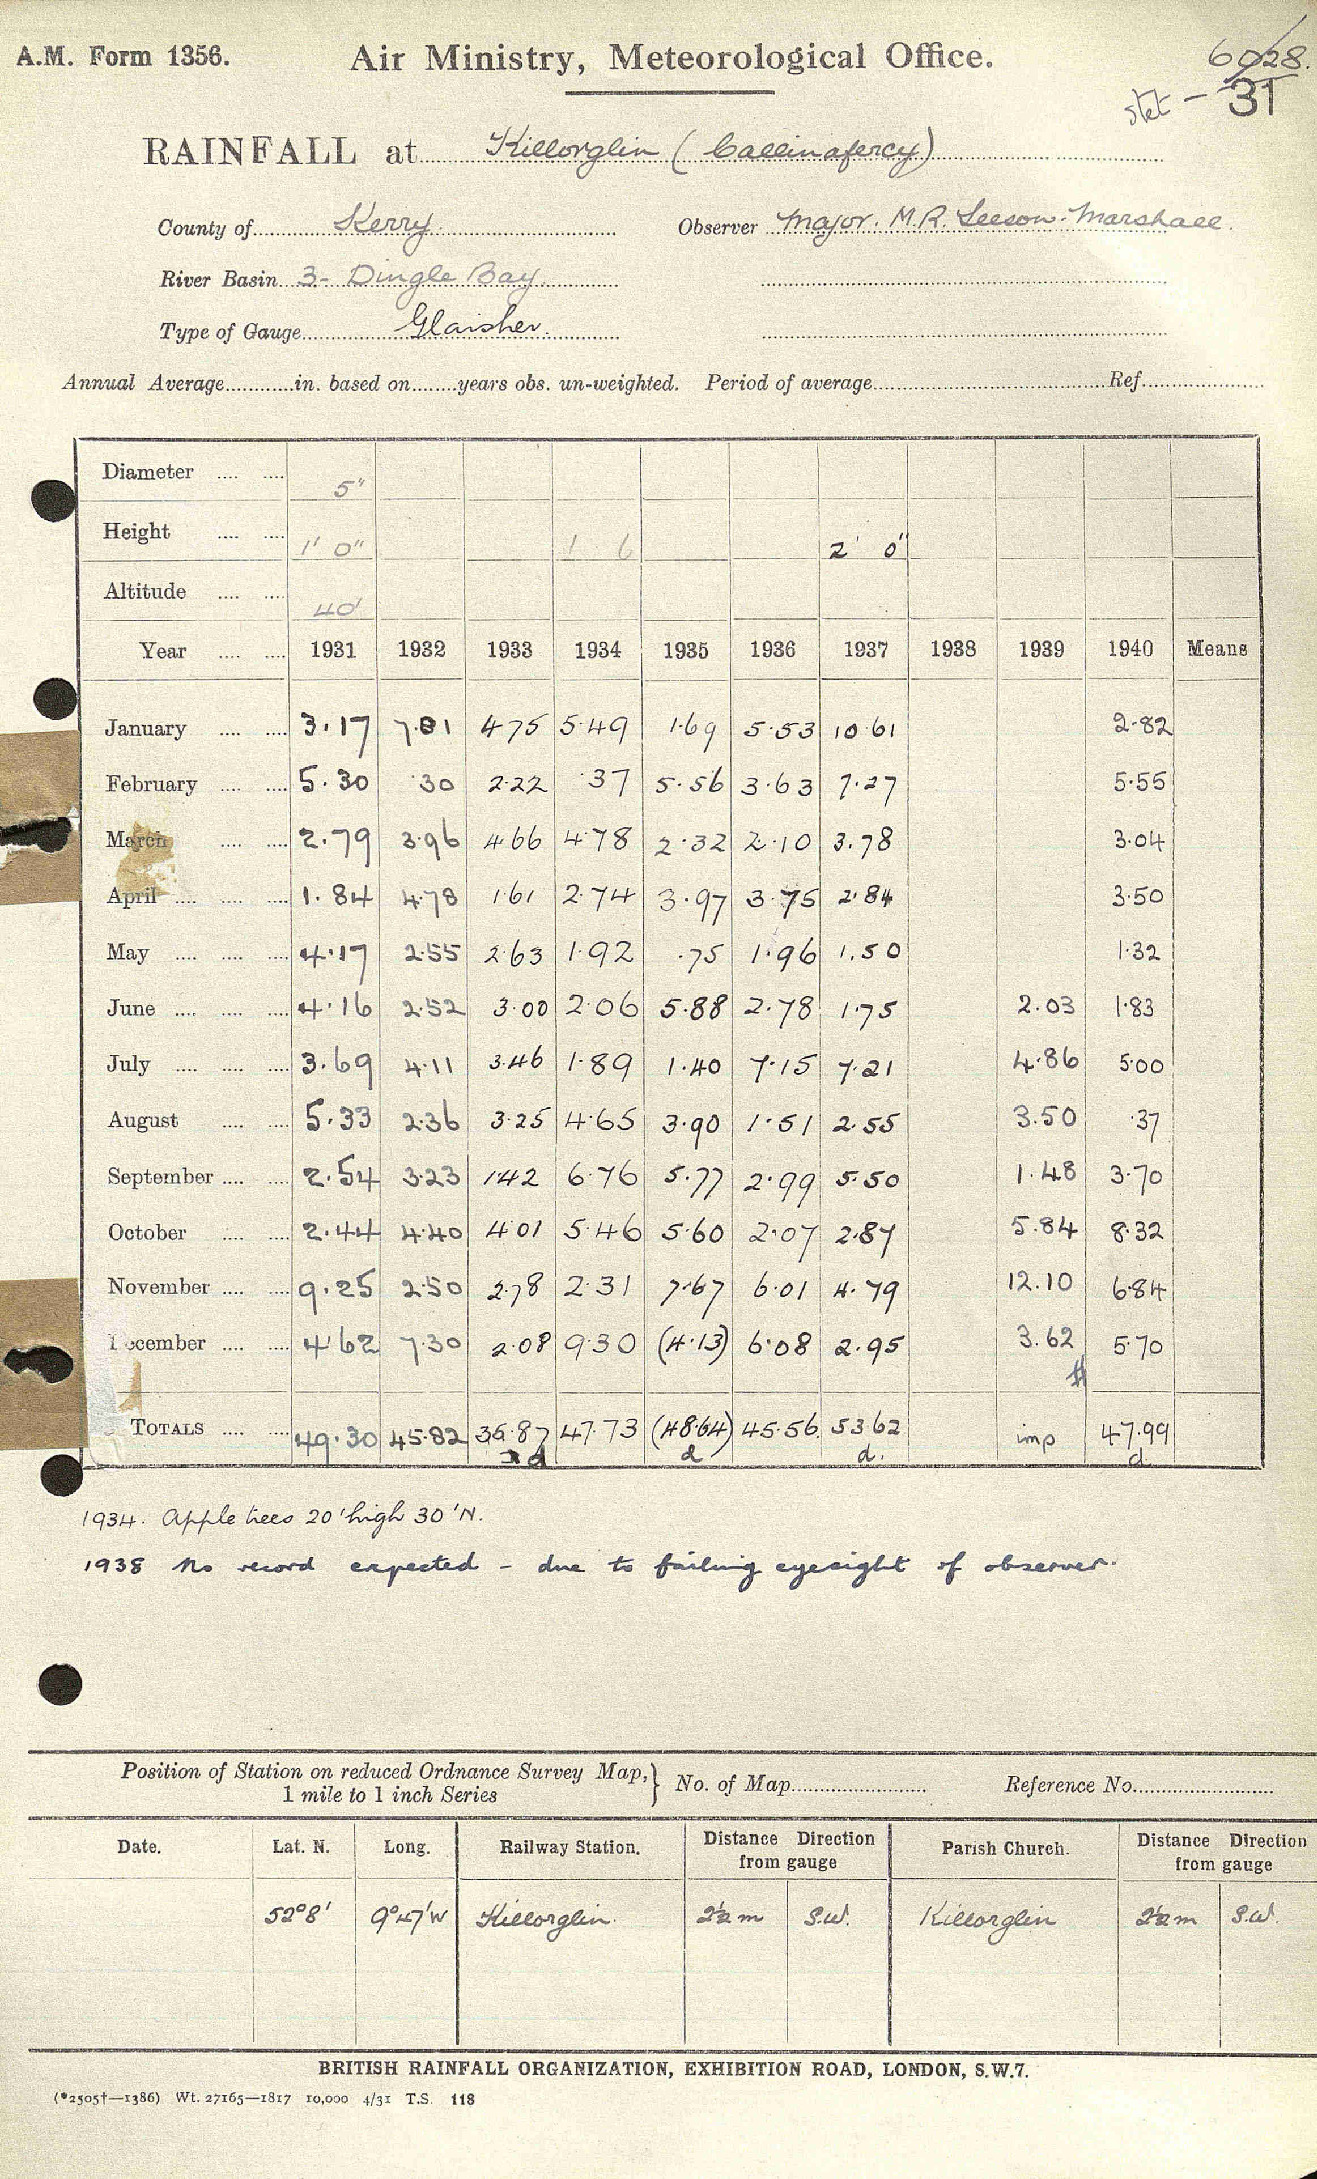 A.M. Form 1356.
Air Ministry, Meteorological Office.
6028.
stet - 31
RAINFALL at Killorglin (Callinafercy)
County of Kerry. Observer Major. M.R. Leeson-Marshall.
River Basin 3- Dingle Bay
Type of Gauge Glaisher.
Annual Average in. based on years obs. un-weighted. Period of average Ref.
Diameter 5"
Height 1' 0" 1 6 2' 0"
Altitude 40'
Year 1931 1932 1933 1934 1935 1936 1937 1938 1939 1940 Means
January 3.17 7.81 4.75 5.49 1.69 5.53 10.61 2.82
February 5.30 .30 2.22 .37 5.56 3.63 7.27 5.55
March 2.79 3.96 4.66 4.78 2.32 2.10 3.78 3.04
April 1.84 4.78 1.61 2.74 3.97 3.75 2.84 3.50
May 4.17 2.55 2.63 1.92 .75 1.96 1.50 1.32
June 4.16 2.52 3.00 2.06 5.88 2.78 1.75 2.03 1.83
July 3.69 4.11 3.46 1.89 1.40 7.15 7.21 4.86 5.00
August 5.33 2.36 3.25 4.65 3.90 1.51 2.55 3.50 .37
September 2.54 3.23 1.42 6.76 5.77 2.99 5.50 1.48 3.70
October 2.44 4.40 4.01 5.46 5.60 2.07 2.87 5.84 8.32
November 9.25 2.50 2.78 2.31 7.67 6.01 4.79 12.10 6.84
December 4.62 7.30 2.08 9.30 (4.13) 6.08 2.95 3.62 5.70
TOTALS 49.30 45.82 35.87 47.73 (48.64) 45.56 53.62 imp 47.99
d d d. d
1934. Apple trees 20' high 30' N.
1938 No record expected - due to failing eyesight of observer.
Position of Station on reduced Ordnance Survey Map, 1 mile to 1 inch Series } No. of Map Reference No.
Date. Lat. N. Long. Railway Station. Distance Direction from gauge Parish Church. Distance Direction from gauge
52°8' 9°47'W Killorglin. 2½m S.W. Killorglin 2½m S.W.
BRITISH RAINFALL ORGANIZATION, EXHIBITION ROAD, LONDON, S.W.7.
(*2505†—1386) Wt. 27165—1817 10,000 4/31 T.S. 118